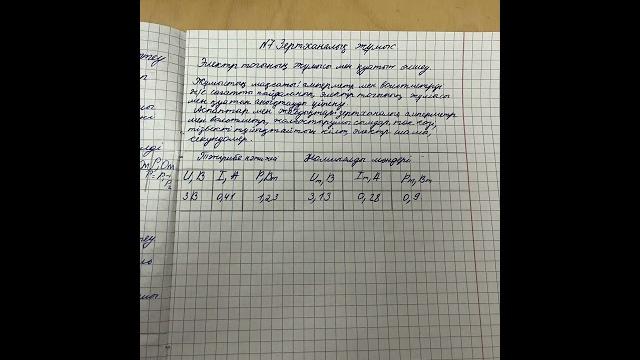 N7 Зертханалық жұмыс
Электр тогының жұмысы мен қуатын өлшеу.
Жұмыстың мақсаты: амперметр мен вольтметрді
ж/е сағатты пайдаланып, электр тогының жұмысы
мен қуатын анықтауды үйрену.
Аспаптар мен жабдықтар: зертханалық амперметр
мен вольтметр, жалғастырушы сымдар, ток көзі,
тізбекті тұйықтайтын кілт, электр шамы,
секундомер.
Тәжірибе нәтиже Номиналды мәндері
U, В I, А P, Вт Uт, В Iт, А Pт, Вт
3В 0,41 1,23 3,13 0,28 0,9